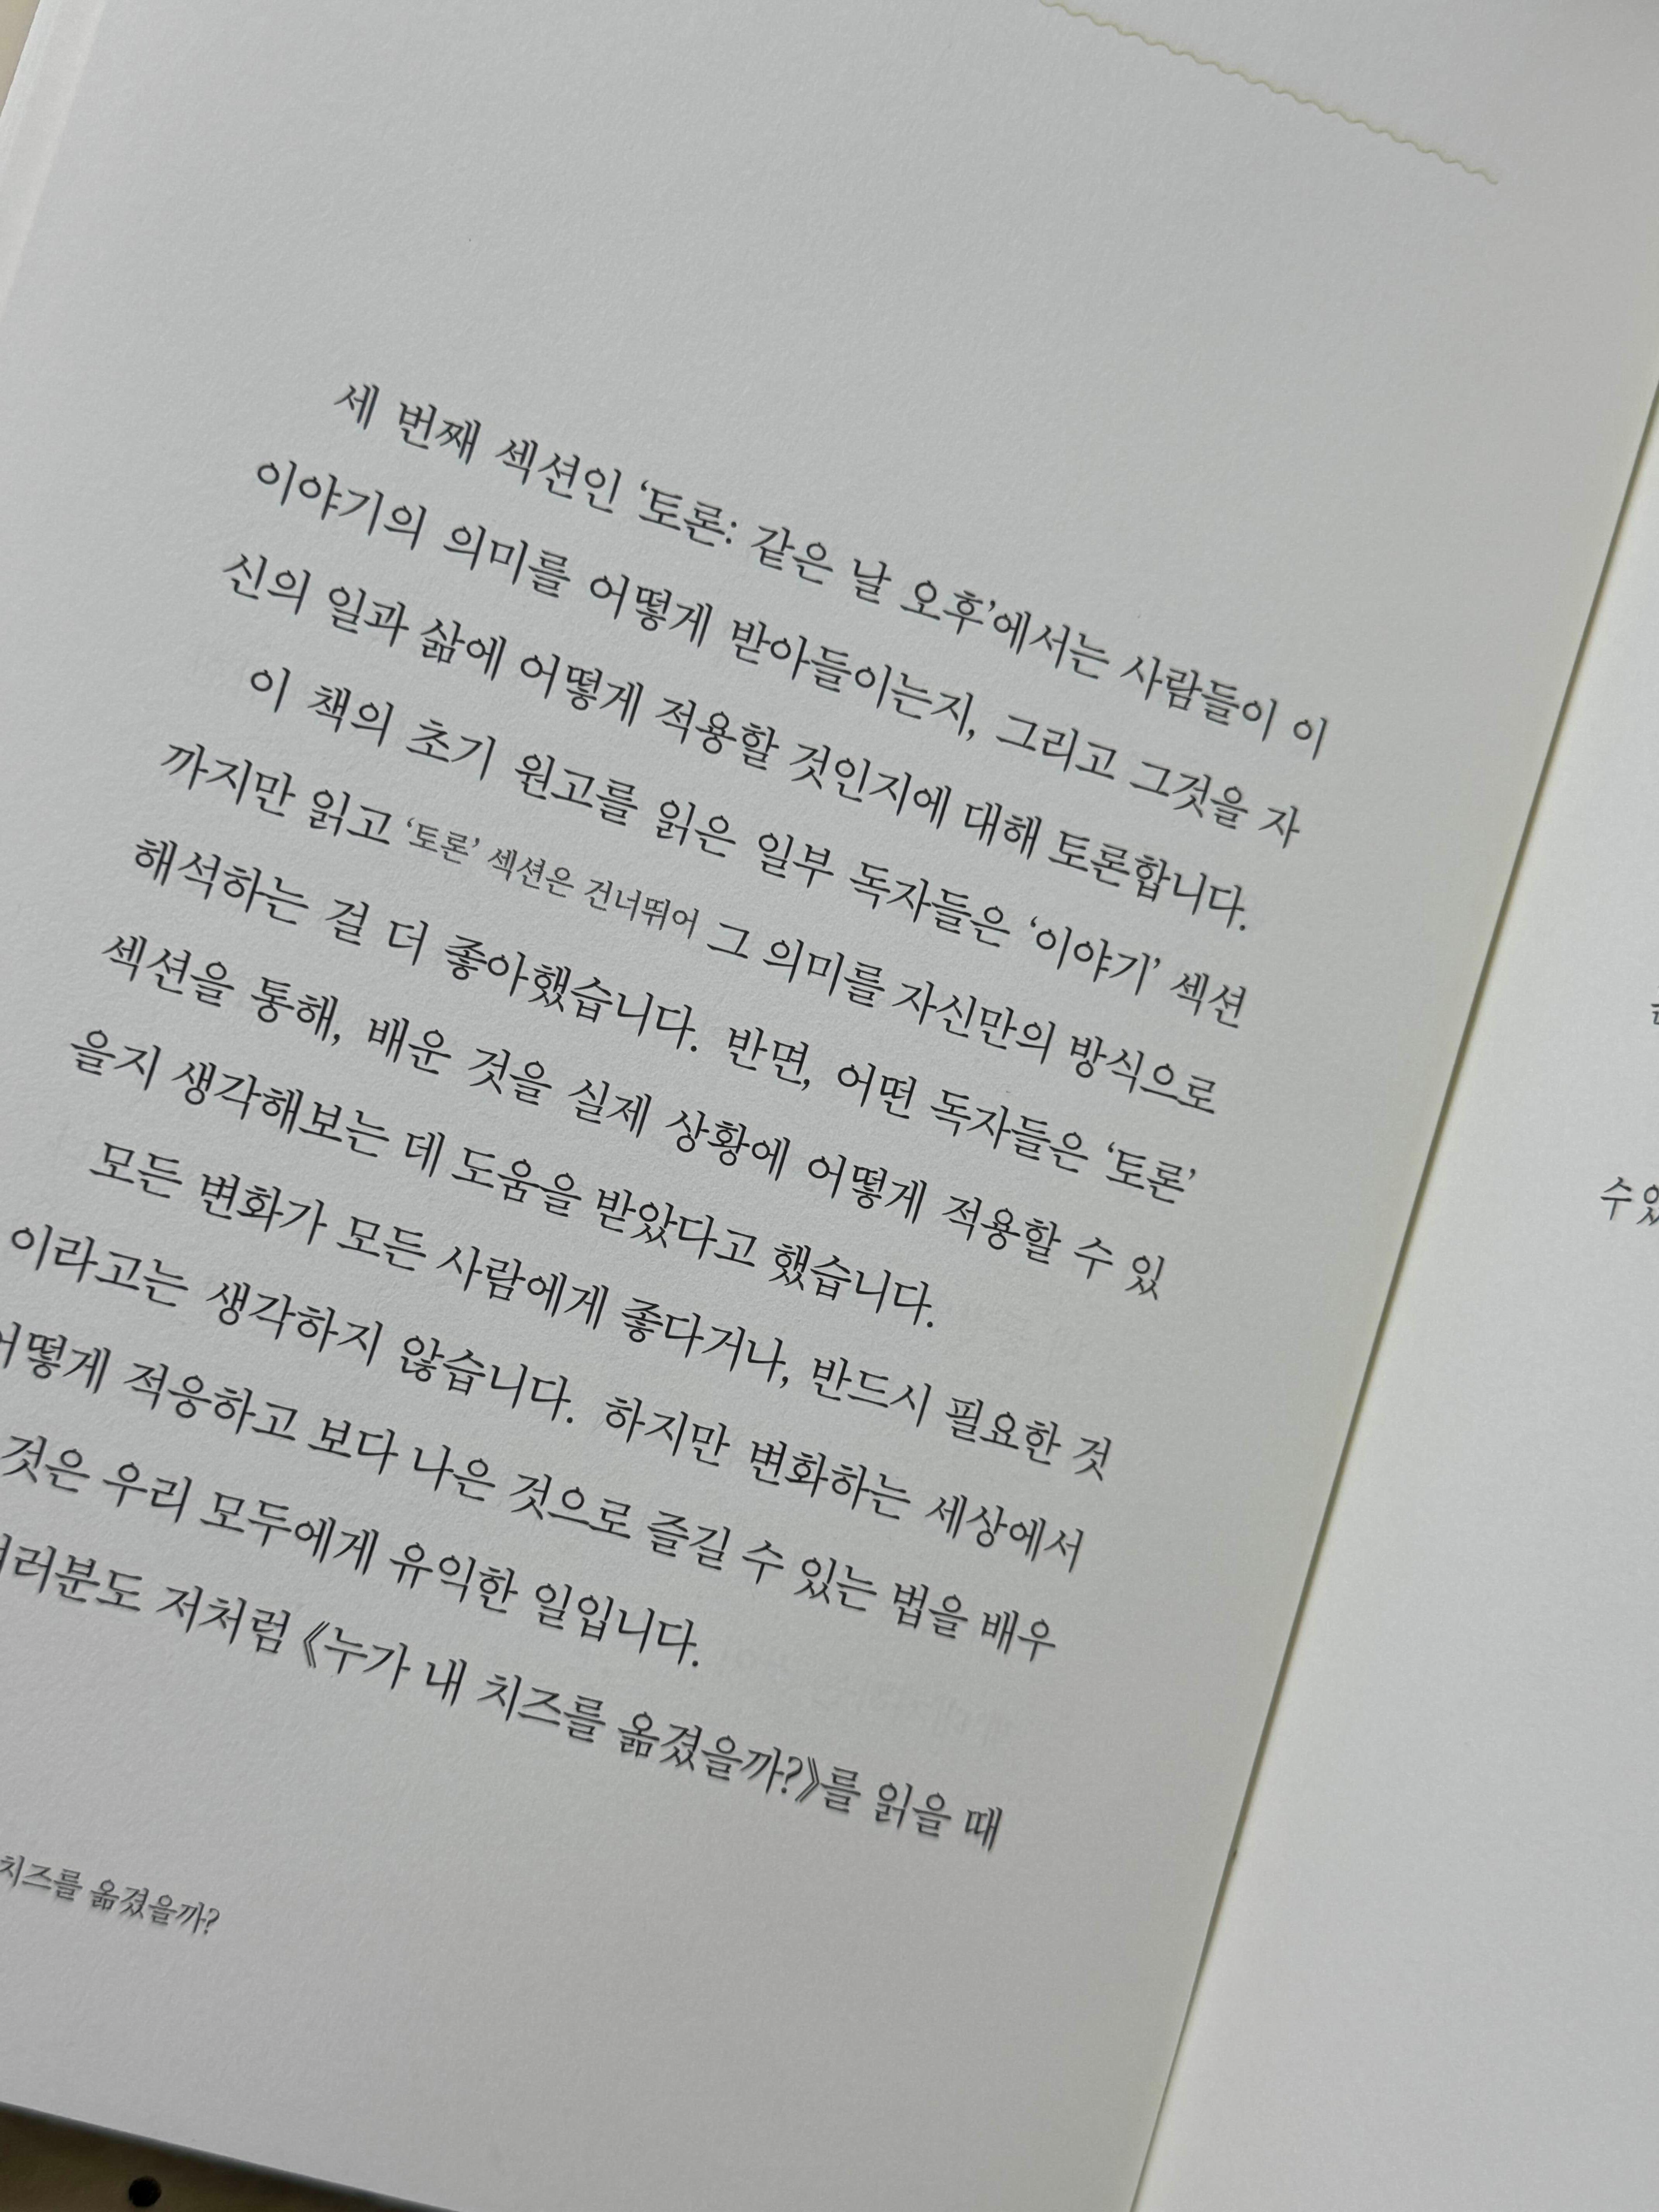 세 번째 섹션인 ‘토론: 같은 날 오후’에서는 사람들이 이
이야기의 의미를 어떻게 받아들이는지, 그리고 그것을 자
신의 일과 삶에 어떻게 적용할 것인지에 대해 토론합니다.
이 책의 초기 원고를 읽은 일부 독자들은 ‘이야기’ 섹션
까지만 읽고 ‘토론’ 섹션은 건너뛰어 그 의미를 자신만의 방식으로
해석하는 걸 더 좋아했습니다. 반면, 어떤 독자들은 ‘토론’
섹션을 통해, 배운 것을 실제 상황에 어떻게 적용할 수 있
을지 생각해보는 데 도움을 받았다고 했습니다.
모든 변화가 모든 사람에게 좋다거나, 반드시 필요한 것
이라고는 생각하지 않습니다. 하지만 변화하는 세상에서
어떻게 적응하고 보다 나은 것으로 즐길 수 있는 법을 배우
것은 우리 모두에게 유익한 일입니다.
여러분도 저처럼 《누가 내 치즈를 옮겼을까?》를 읽을 때
치즈를 옮겼을까?
수있